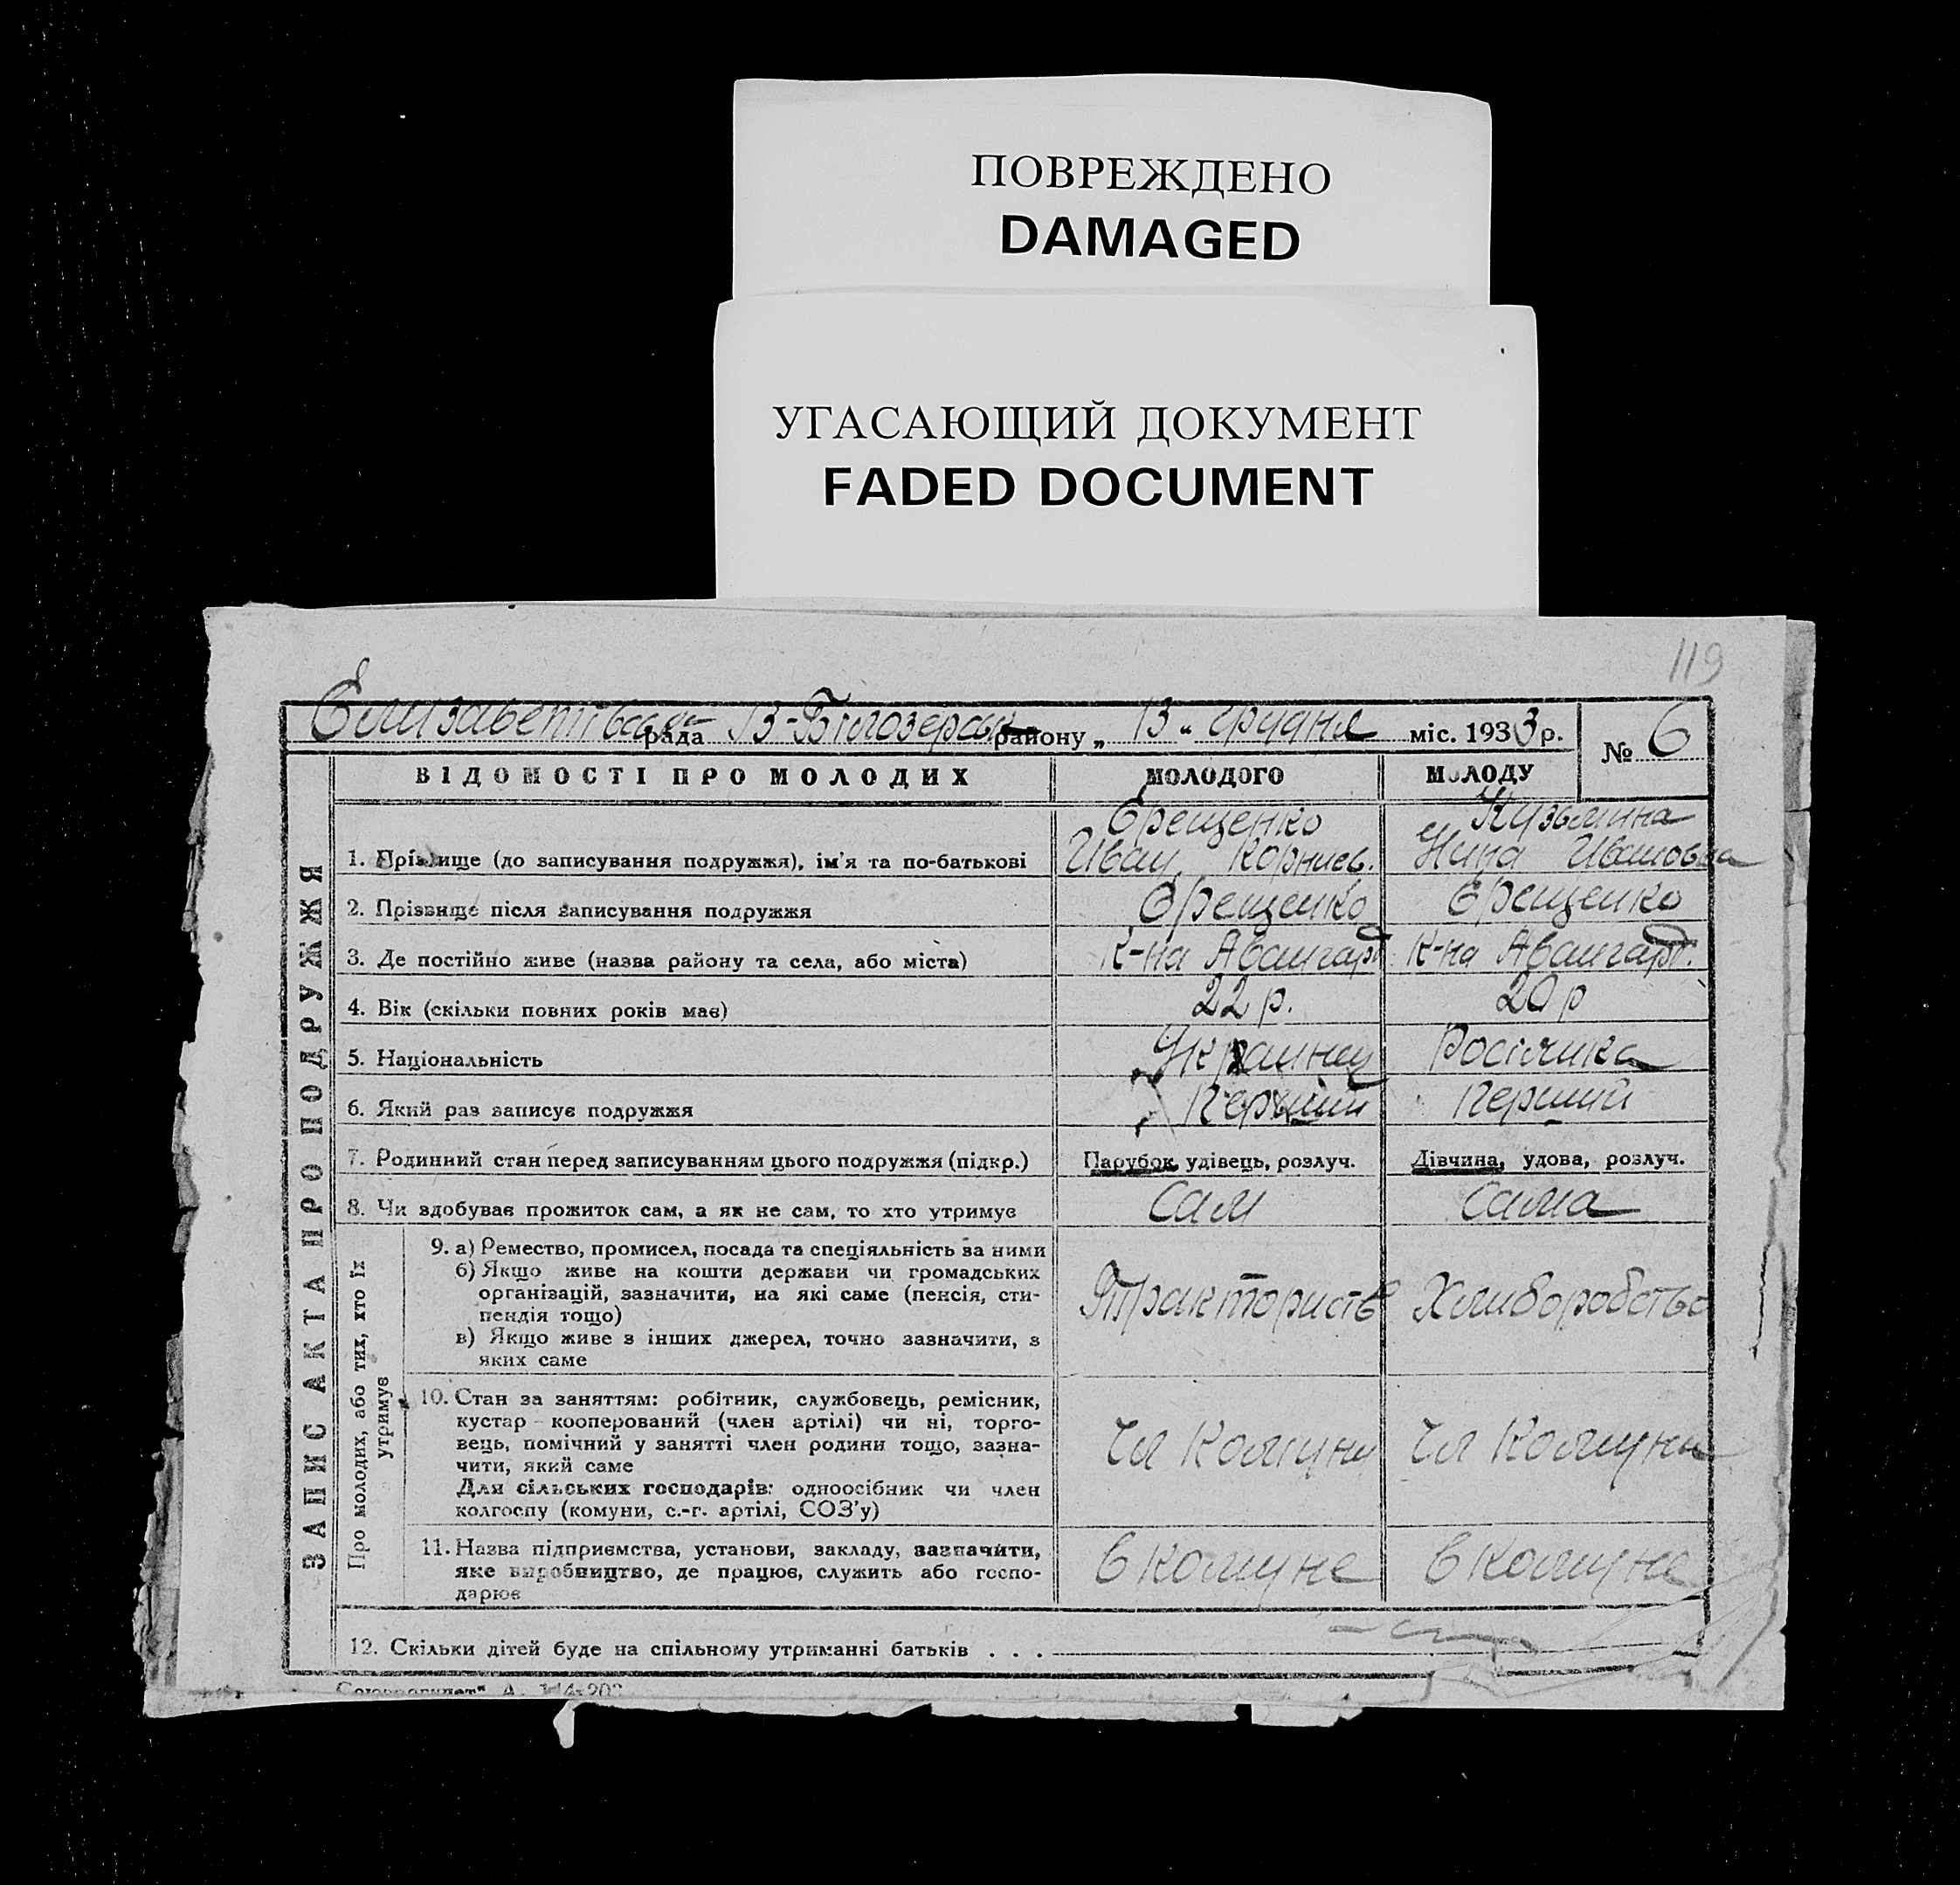 ПОВРЕЖДЕНО
DAMAGED
УГАСАЮЩИЙ ДОКУМЕНТ
FADED DOCUMENT
119
рада В-Білозерськ району „ 13 “ грудня міс. 1933 р.
№ 6
ЗАПИС АКТА ПРО ПОДРУЖЖЯ
ВІДОМОСТІ ПРО МОЛОДИХ МОЛОДОГО МОЛОДУ
Єрещенко Кузьмина
1. Прізвище (до записування подружжя), ім'я та по-батькові Иван Корниев. Нина Ивановна
2. Прізвище після записування подружжя Єрещенко Єрещенко
3. Де постійно живе (назва району та села, або міста) К-на Авангард К-на Авангард.
4. Вік (скільки повних років має) 22 р. 20 р
5. Національність Росіянка
6. Який раз записує подружжя Перший Перший
7. Родинний стан перед записуванням цього подружжя (підкр.) Парубок, удівець, розлуч. Дівчина, удова, розлуч.
8. Чи здобуває прожиток сам, а як не сам, то хто утримує Сам Сама
Про молодих, або тих, хто їх
утримує
9. а) Ремество, промисел, посада та спеціяльність за ними
б) Якщо живе на кошти держави чи громадських
організацій, зазначити, на які саме (пенсія, сти-
пендія тощо)
в) Якщо живе з інших джерел, точно зазначити, з
яких саме
Хлиборобство
10. Стан за заняттям: робітник, службовець, ремісник,
кустар - кооперований (член артілі) чи ні, торго-
вець, помічний у занятті член родини тощо, зазна-
чити, який саме
Для сільських господарів: одноосібник чи член
колгоспу (комуни, с.-г. артілі, СОЗ'у)
чл Комуни чл Комуни
11. Назва підприємства, установи, закладу, зазначити,
яке виробництво, де працює, служить або госпо-
дарює
в комуне в комуне
12. Скільки дітей буде на спільному утриманні батьків . . .